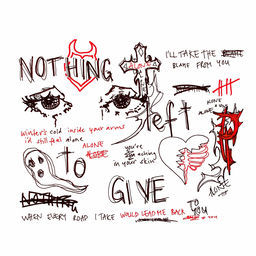 NOTHING
I'LL TAKE THE BLAME
BLAME FROM YOU
left
ALONE
ALONE
Winter's cold inside your arms
i'd still feel alone
ALONE
you're
itching
in your skin
TO
GIVE
ALONE
NOTHING
WHEN EVERY ROAD I TAKE WOULD LEAD ME BACK TO YOU